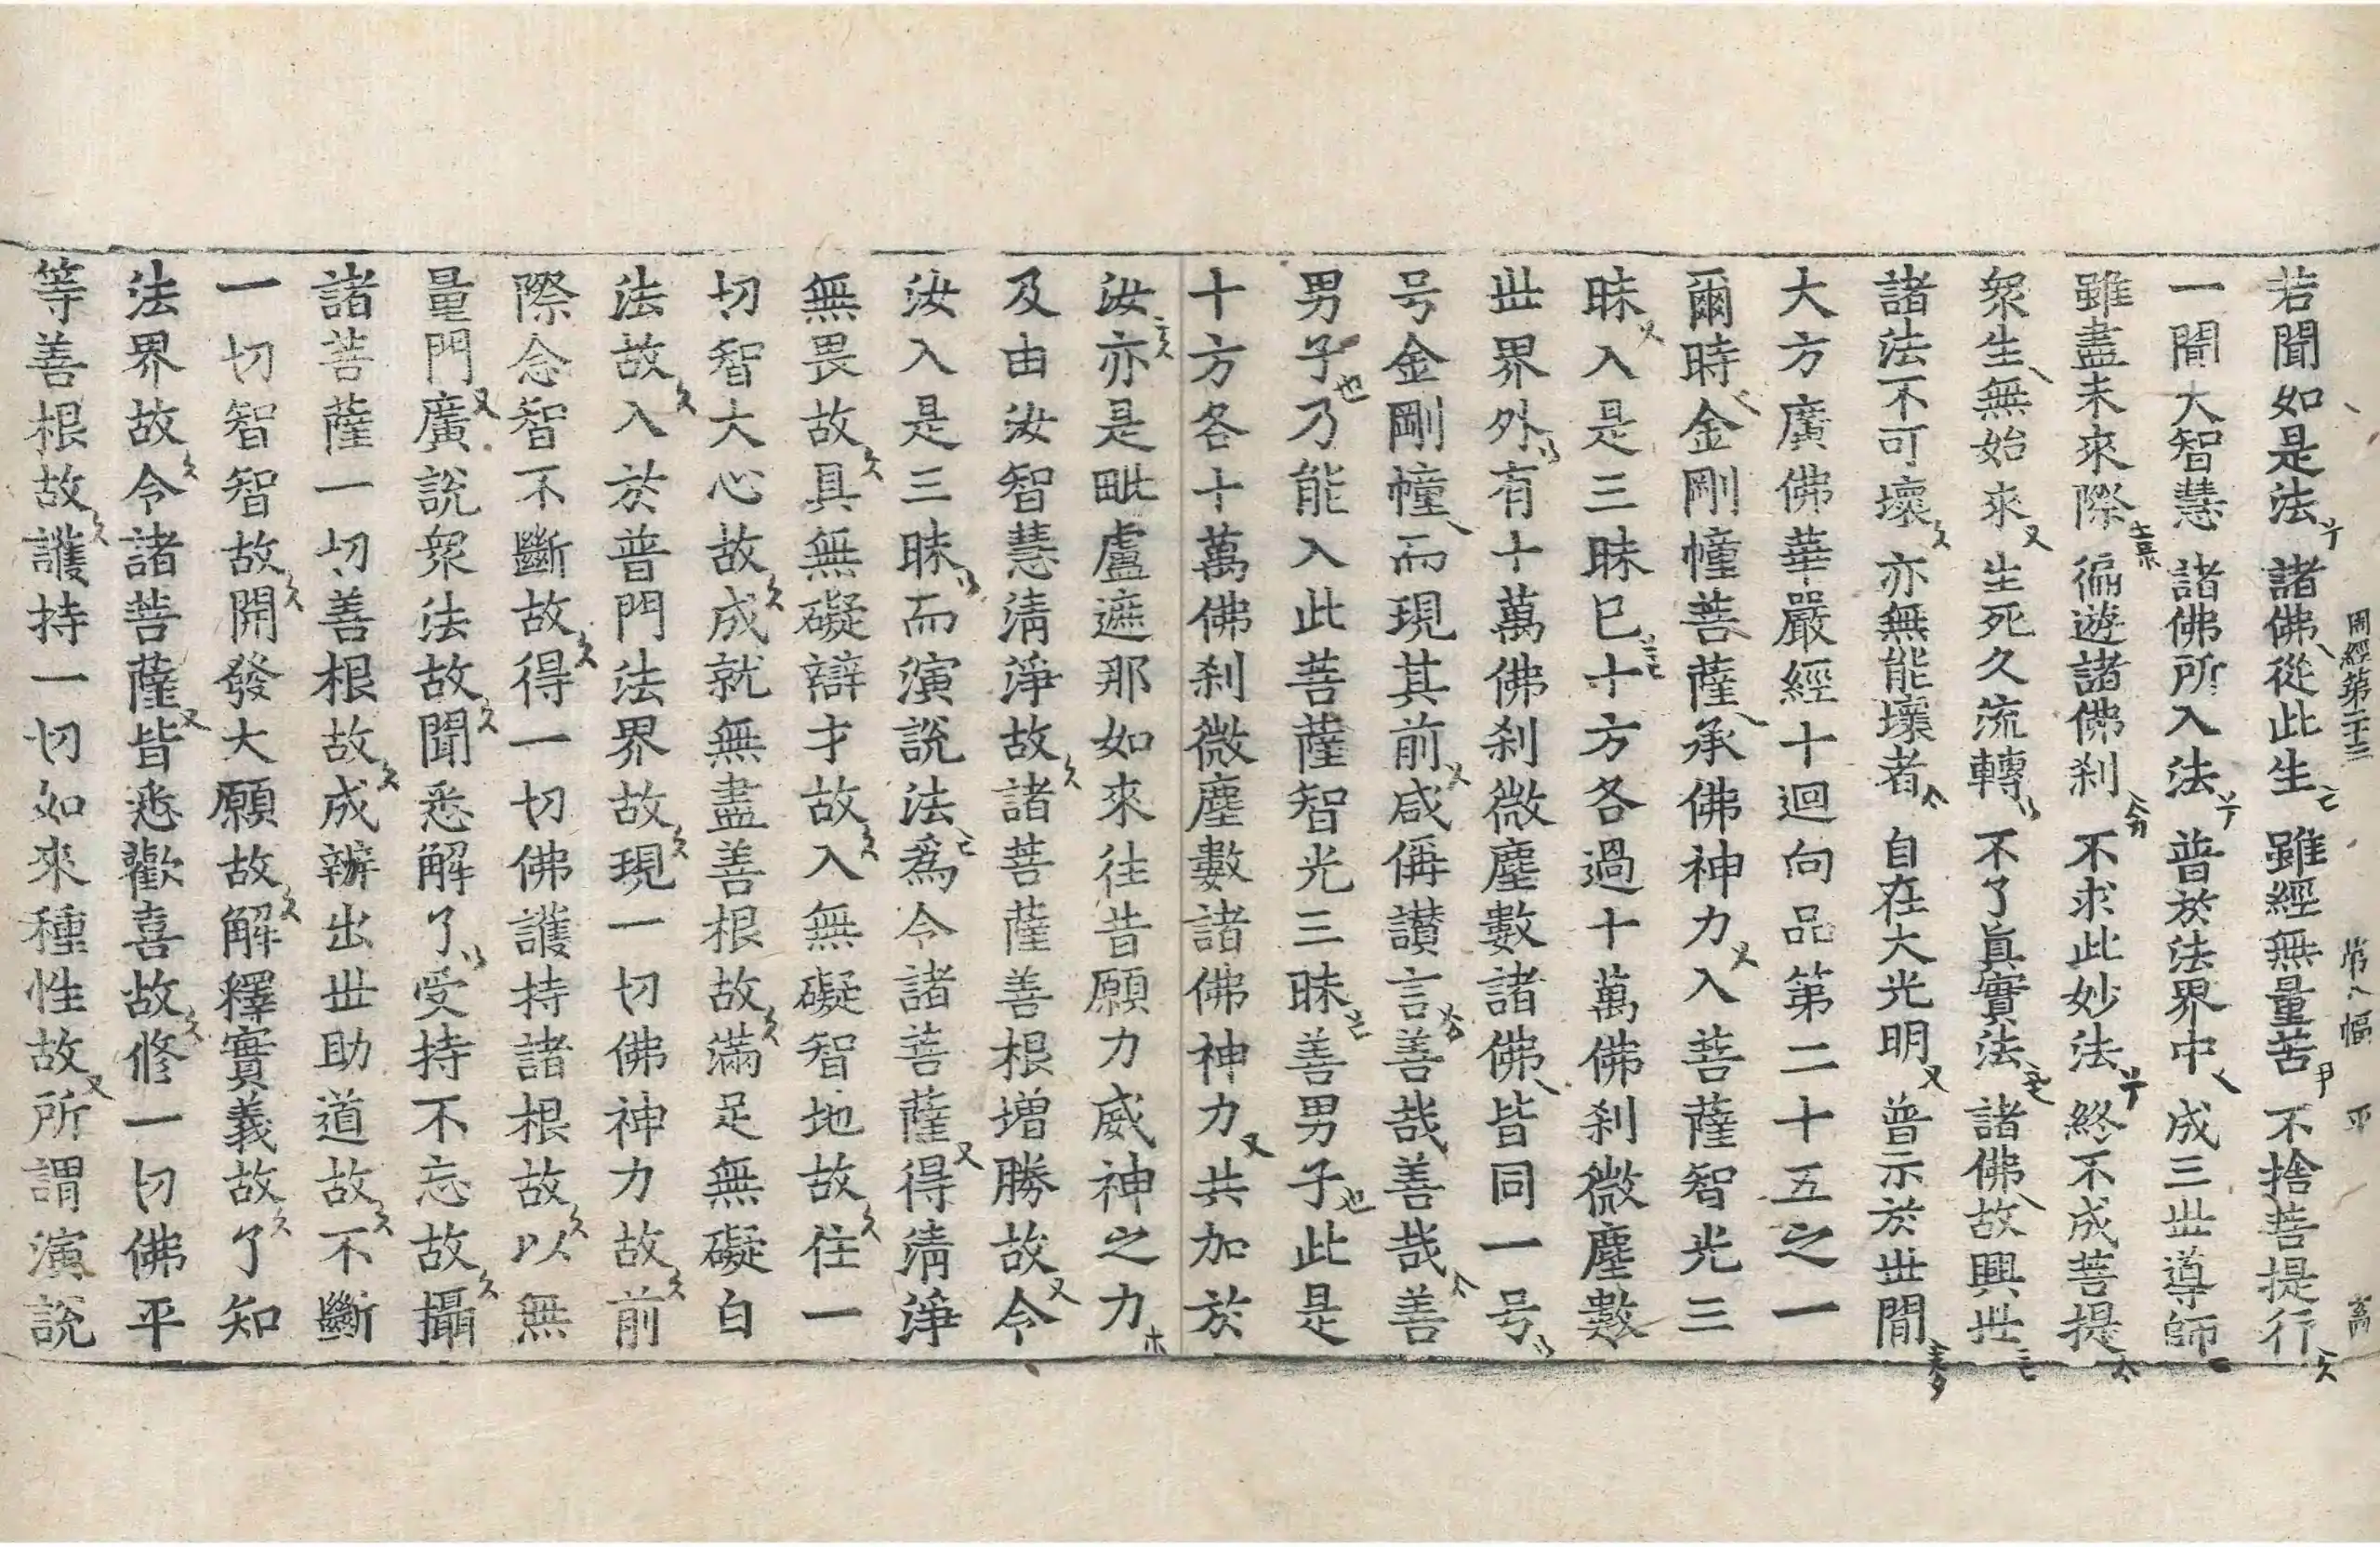 周經第二十三 第八幅 平 高
若聞如是法 諸佛從此生 雖經無量苦 不捨菩提行
一聞大智慧 諸佛所入法 普於法界中 成三世導師
雖盡未來際 徧遊諸佛刹 不求此妙法 終不成菩提
衆生無始來 生死久流轉 不了眞實法 諸佛故興世
諸法不可壞 亦無能壞者 自在大光明 普示於世間
大方廣佛華嚴經十迴向品第二十五之一
爾時金剛幢菩薩承佛神力入菩薩智光三
昧入是三昧已十方各過十萬佛刹微塵數
世界外有十萬佛刹微塵數諸佛皆同一号
号金剛幢而現其前咸偁讃言善哉善哉善
男子乃能入此菩薩智光三昧善男子此是
十方各十萬佛刹微塵數諸佛神力共加於
汝亦是毗盧遮那如來往昔願力威神之力
及由汝智慧淸淨故諸菩薩善根增勝故令
汝入是三昧而演說法爲令諸菩薩得淸淨
無畏故具無礙辯才故入無礙智地故住一
切智大心故成就無盡善根故滿足無礙白
法故入於普門法界故現一切佛神力故前
際念智不斷故得一切佛護持諸根故以無
量門廣說衆法故聞悉解了受持不忘故攝
諸菩薩一切善根故成辦出世助道故不斷
一切智智故開發大願故解釋實義故了知
法界故令諸菩薩皆悉歡喜故修一切佛平
等善根故護持一切如來種性故所謂演說